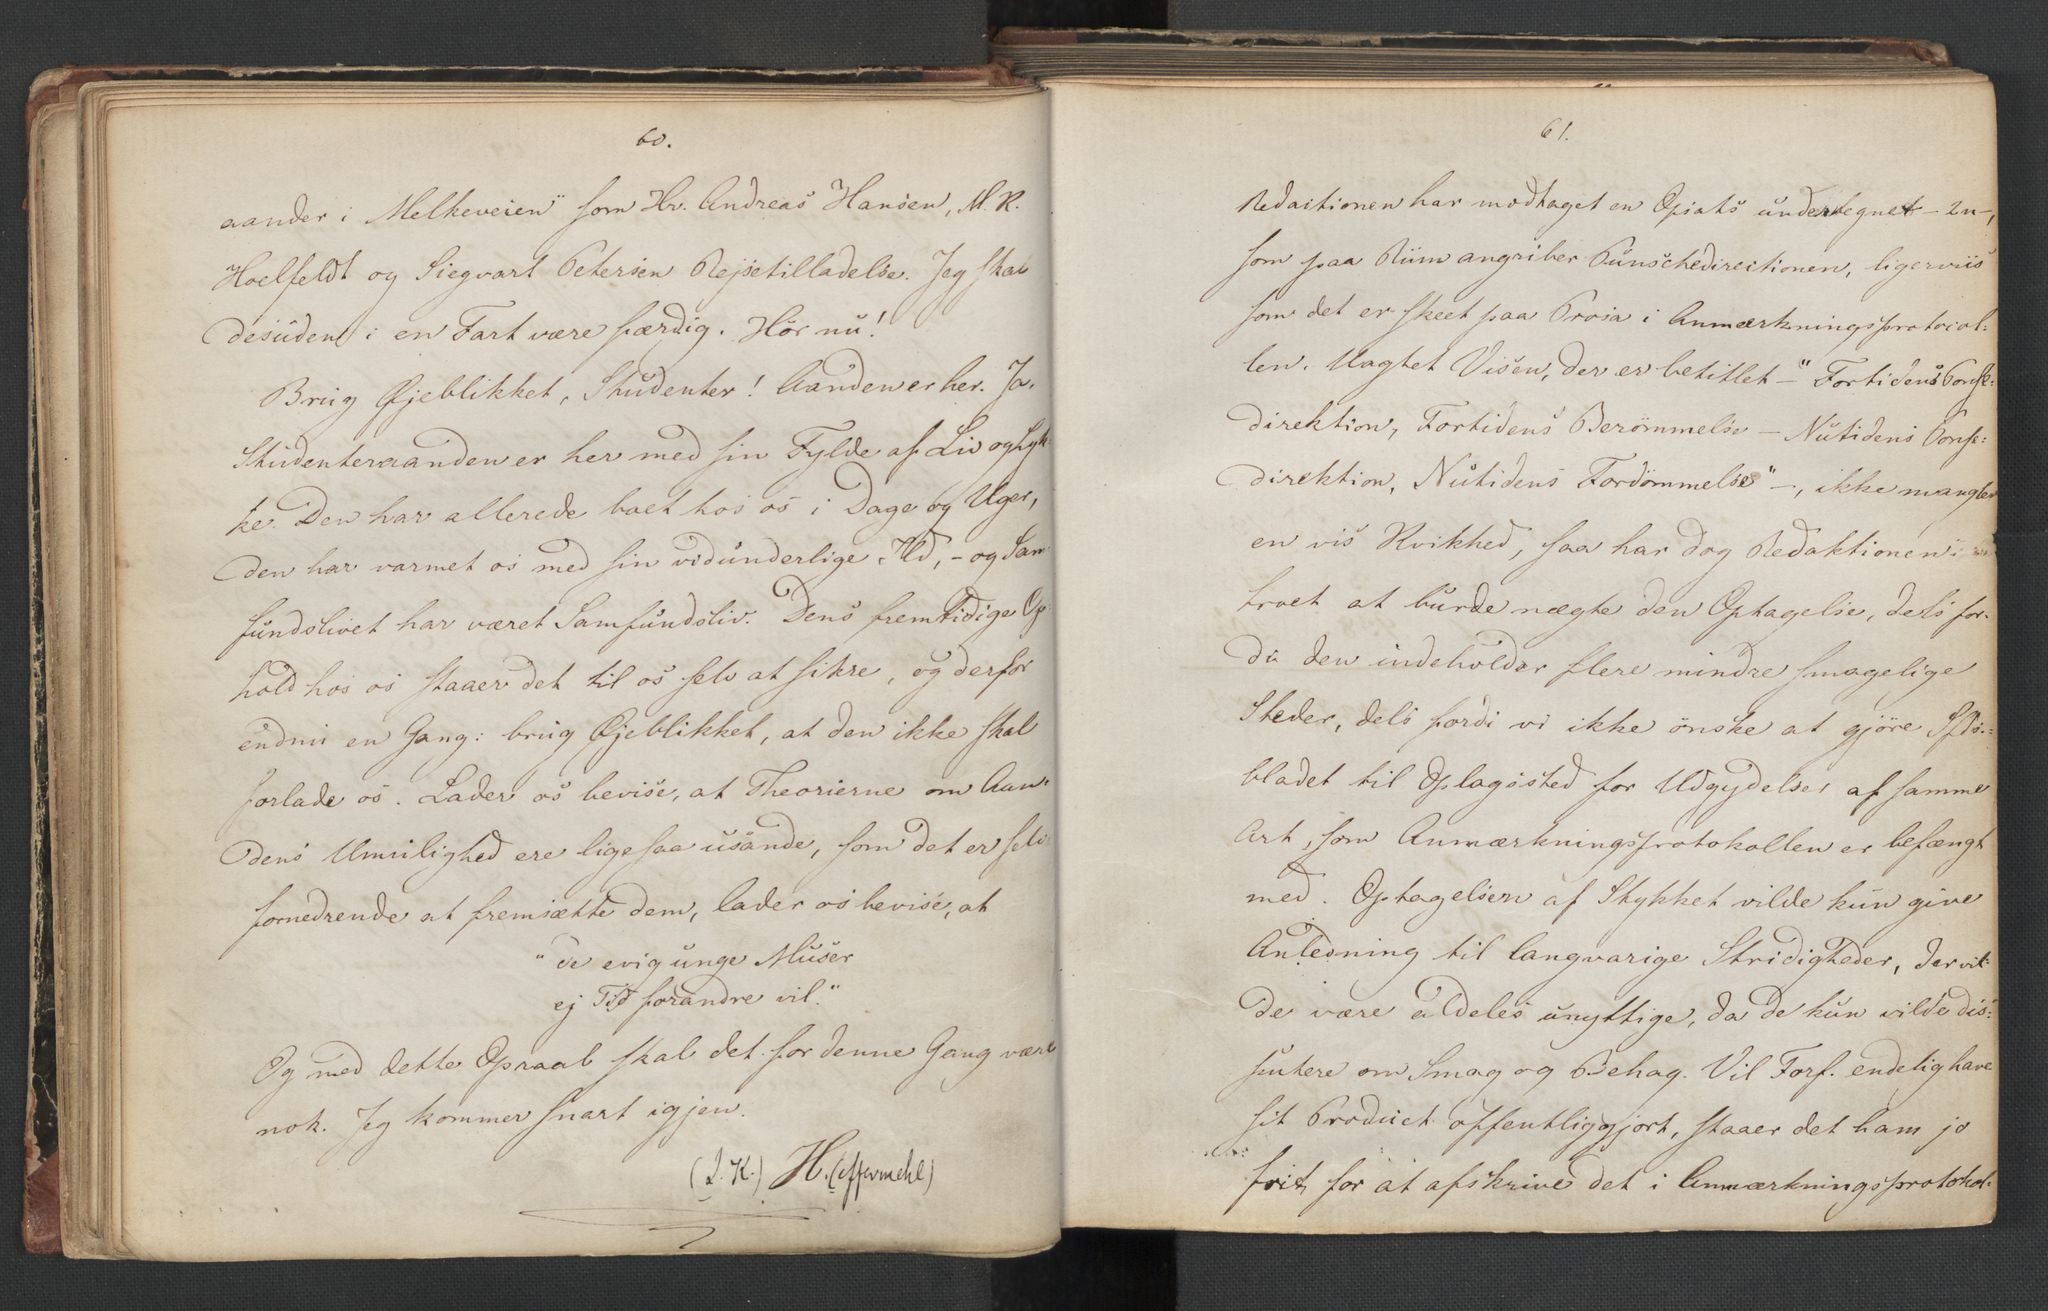 60.
aander i Melkeveien" som Hr. Andreas Hansen, M. R.
Hoelfeldt og Siegvart Petersen Rejsetilladelse. Jeg skal
desuden i en Fart være færdig. Hör nu!
Brug Øjeblikket, Studenter! Aanden er her. Ja.
Studenteraanden er her med sin Fylde af Liv og Lyk-
ke. Den har allerede boet hos os i Dage og Uger,
den har varmet os med sin vidunderlige Ild, - og Sam-
fundslivet har været Samfundsliv. Dens fremtidige Op-
hold hos os staaer det til os selv at sikre, og derfor
endnu en Gang: brug Øjeblikket, at den ikke skal
forlade os. Lader os bevise, at Theorierne om Aan-
dens Umulighed ere ligesaa usande, som det er selv-
fornedrende at fremsætte dem, lader os bevise, at
"de evig unge Muser
ej Tid forandre vil."
Og med dette Opraab skal det for denne Gang være
nok. Jeg kommer snart igjen.
(I. K.) H. (effermehl)
61.
Redactionen har modtaget en Opiats undertegnet - zn -,
som paa Riim angriber Punschedirectionen, ligerviis
som det er skeet paa Prosa i Anmærkningsprotocol-
len. Uagtet Visen, der er betitlet - "Fortidens Ponse-
direktion, Fortidens Berömmelse - Nutidens Ponse-
direktion, Nutidens Fordömmelse" -, ikke mangler
en vis Kvikhed, saa har dog Redaktionen
troet at burde nægte den Optagelse, dels for-
di den indeholder flere mindre smagelige
Steder, dels fordi vi ikke önske at gjöre Sfds.-
bladet til Oplagssted for Udgydelser af samme
Art, som Anmærkningsprotokollen er befængt
med. Optagelsen af Stykket vilde kun give
Anledning til langvarige Stridigheder, der vil-
de være aldeles unyttige, da de kun vilde dis-
putere om Smag og Behag. Vil Forf. endelig have
sit Product offentliggjort, staaer det ham jo
frit for at afskrive det i Anmærkningsprotokol-